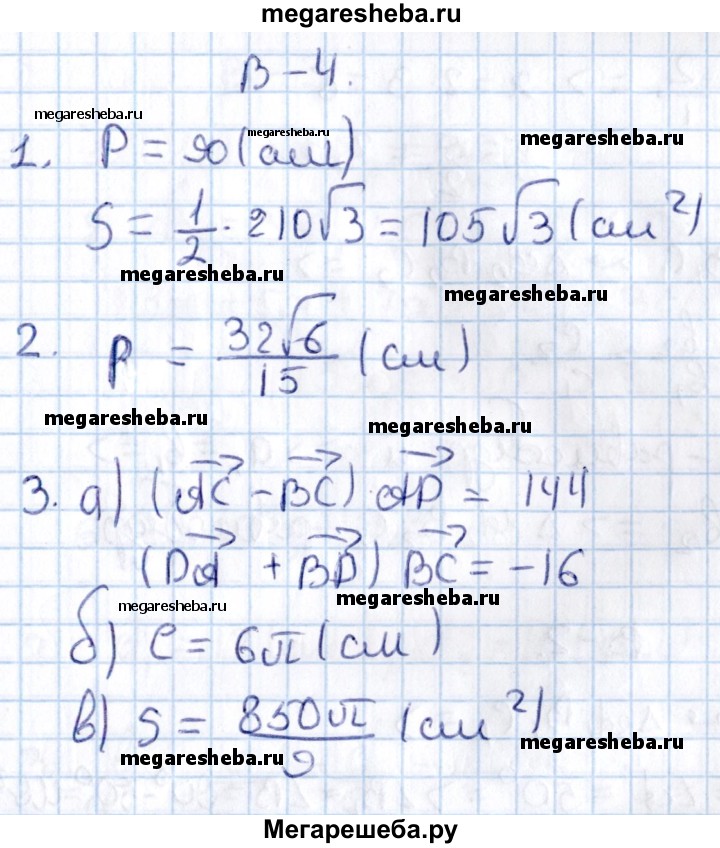 megaresheba.ru
В-4.
megaresheba.ru
1. P = 90 (см)
megaresheba.ru
megaresheba.ru
S = \frac{1}{2} \cdot 210\sqrt{3} = 105\sqrt{3} (см²)
megaresheba.ru
megaresheba.ru
2. P = \frac{32\sqrt{6}}{15} (см)
megaresheba.ru
megaresheba.ru
3. а) (\vec{AC} - \vec{BC}) \vec{AD} = 144
(\vec{DA} + \vec{BD}) \vec{BC} = -16
megaresheba.ru
megaresheba.ru
б) C = 6π (см)
в) S = \frac{850π}{9} (см²)
megaresheba.ru
megaresheba.ru
Мегарешеба.ру